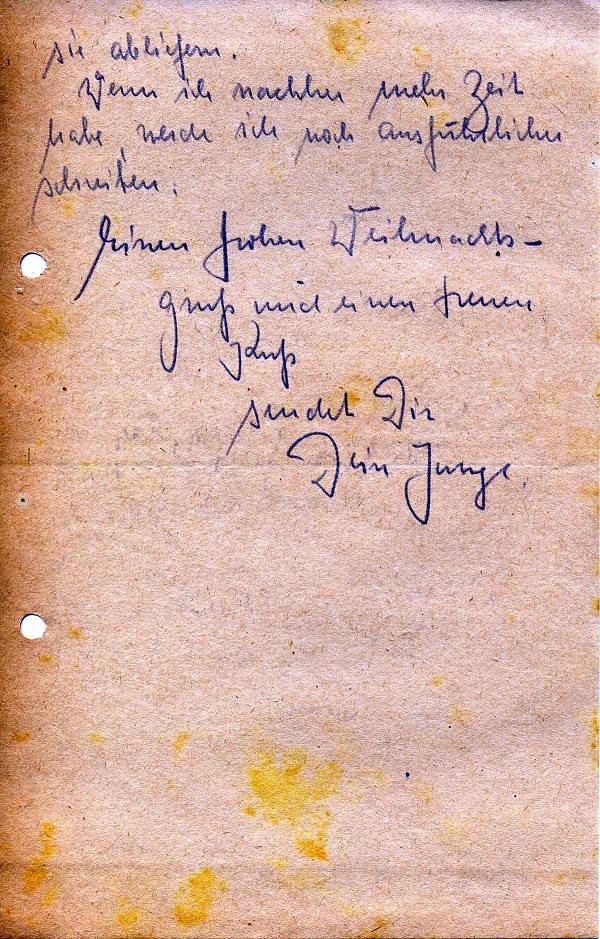 sie abliefern.
Wenn ich nachher mehr Zeit
habe, werde ich noch ausführlicher
schreiben.
Einen frohen Weihnachts-
gruß und einen treuen
Kuß
sendet Dir
Dein Junge.